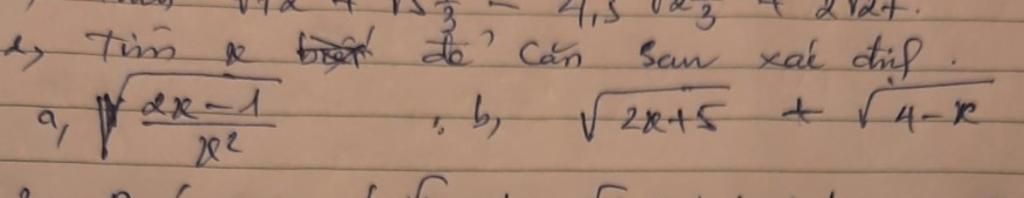 Tìm x để căn sau xác định.
a, √((2x-1)/x²) ; b, √(2x+5) + √(4-x)